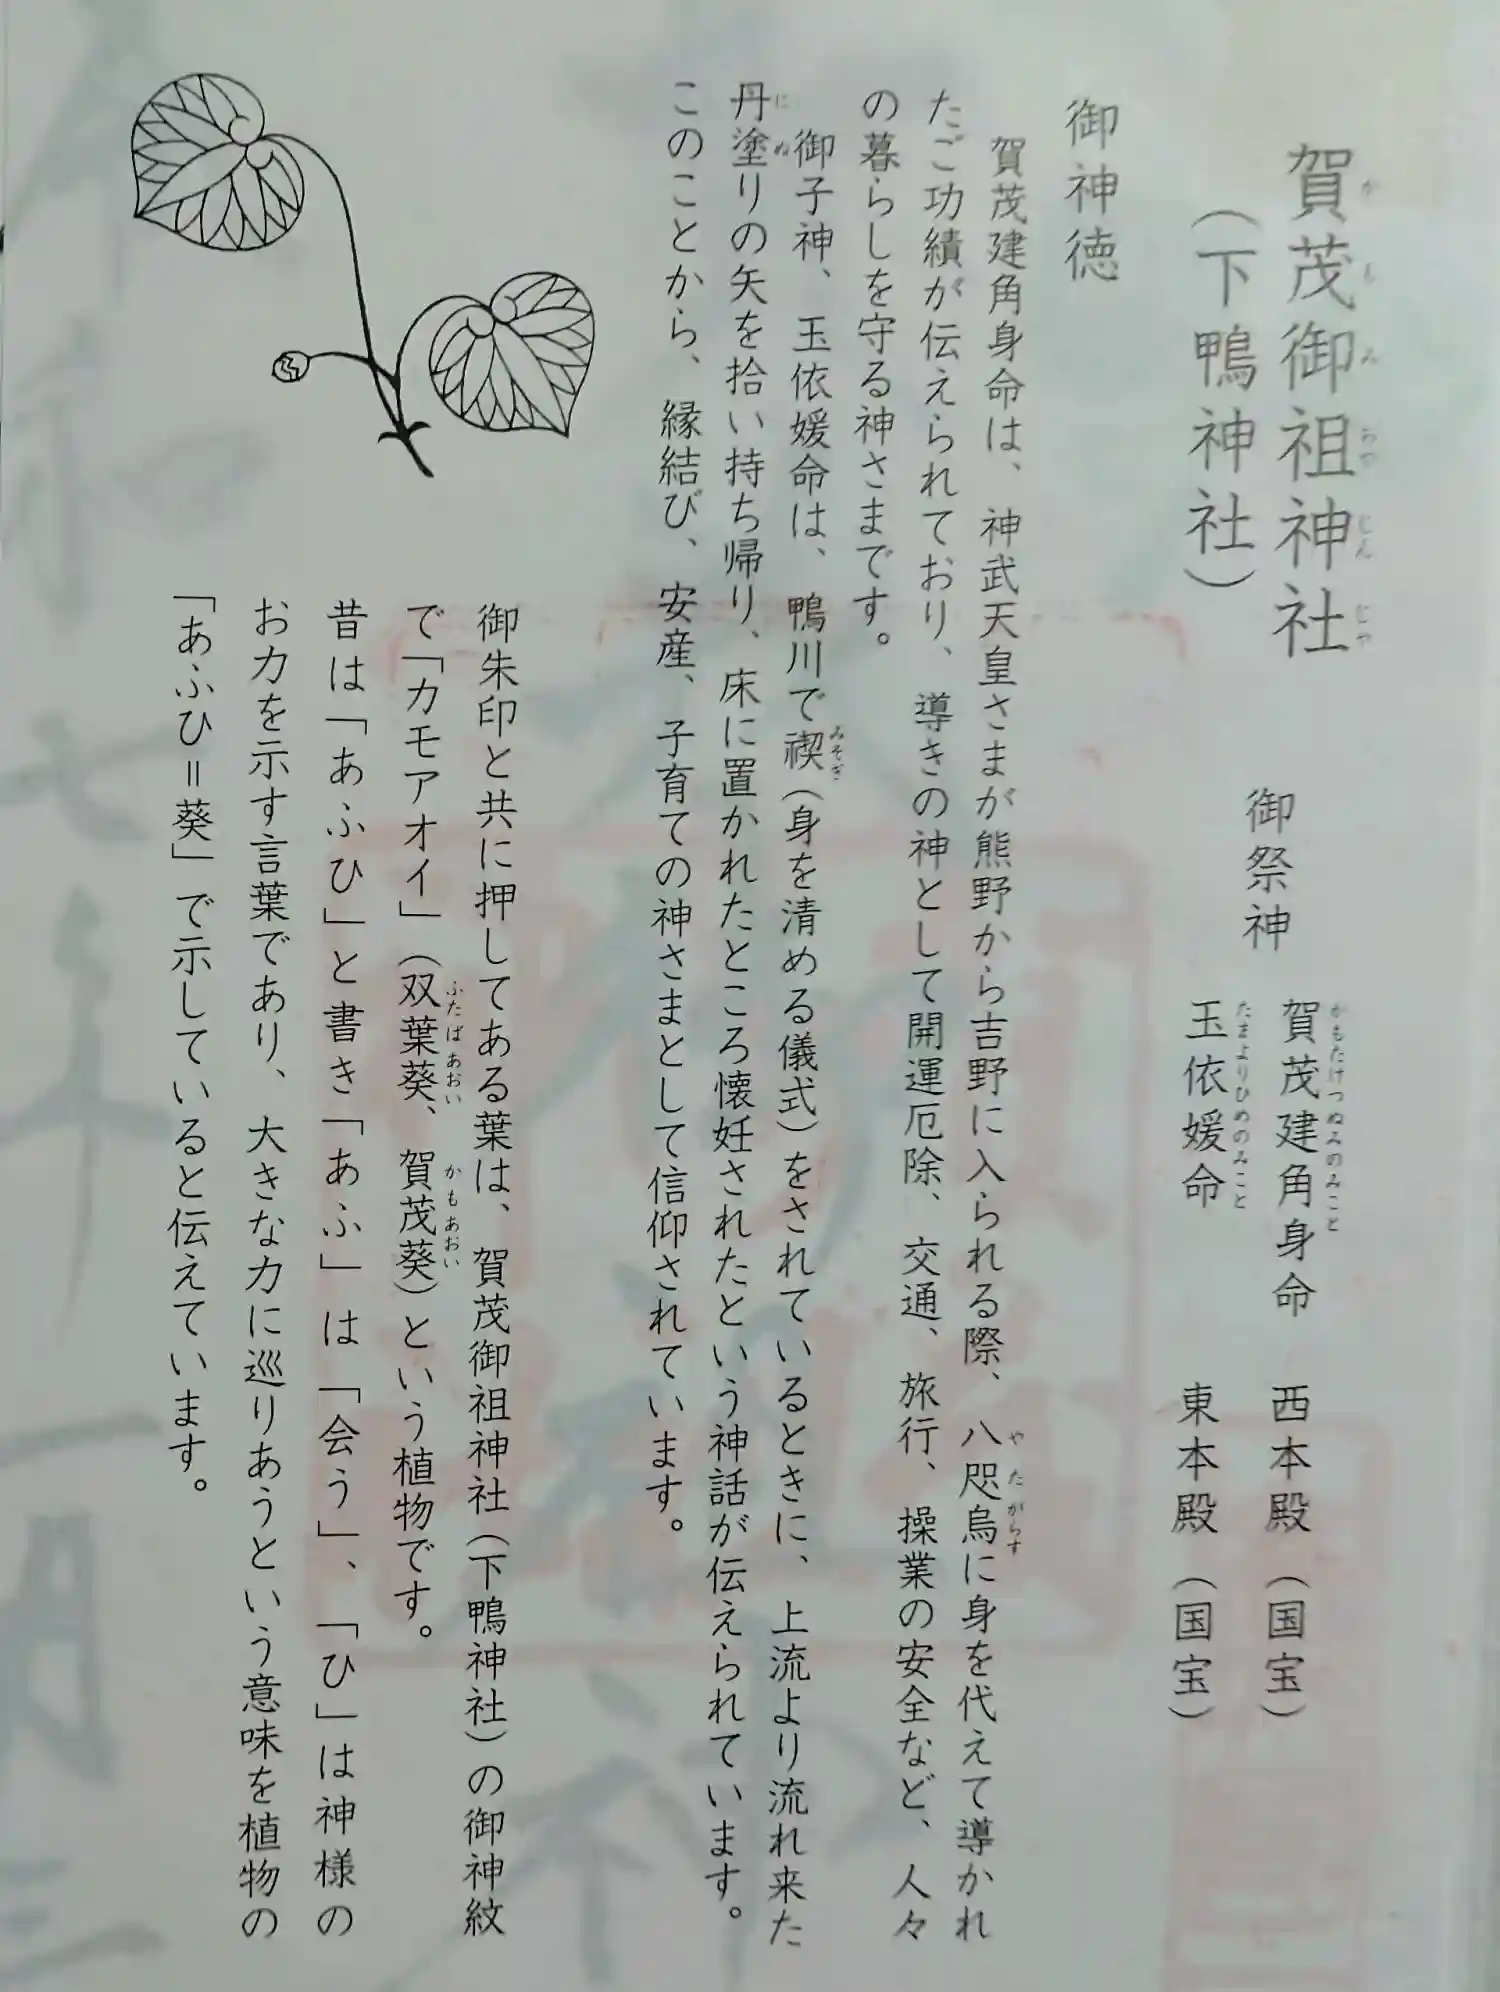 賀茂御祖神社
（下鴨神社）
御祭神
賀茂建角身命 西本殿（国宝）
玉依媛命 東本殿（国宝）
御神徳
賀茂建角身命は、神武天皇さまが熊野から吉野に入られる際、八咫烏に身を代えて導かれ
たご功績が伝えられており、導きの神として開運厄除、交通、旅行、操業の安全など、人々
の暮らしを守る神さまです。
御子神、玉依媛命は、鴨川で禊（身を清める儀式）をされているときに、上流より流れ来た
丹塗りの矢を拾い持ち帰り、床に置かれたところ懐妊されたという神話が伝えられています。
このことから、縁結び、安産、子育ての神さまとして信仰されています。
御朱印と共に押してある葉は、賀茂御祖神社（下鴨神社）の御神紋
で「カモアオイ」（双葉葵、賀茂葵）という植物です。
昔は「あふひ」と書き「あふ」は「会う」、「ひ」は神様の
お力を示す言葉であり、大きな力に巡りあうという意味を植物の
「あふひ＝葵」で示していると伝えています。